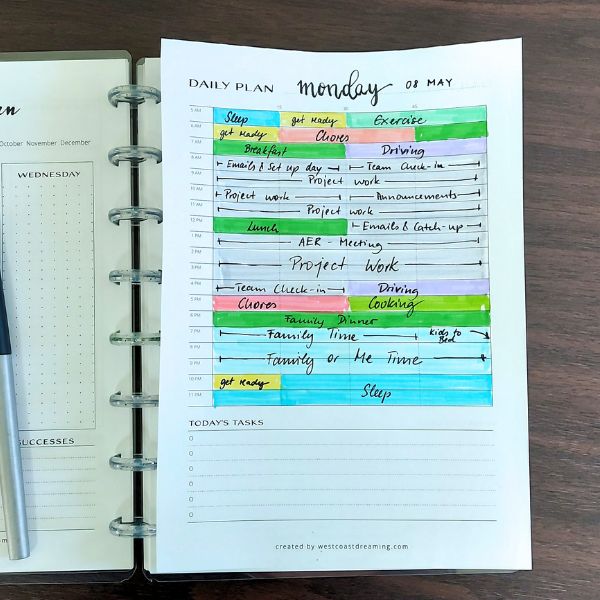 an
October November December
WEDNESDAY
SUCCESSES
DAILY PLAN monday 08 MAY
15 30 45
5 AM Sleep get ready Exercise
6 AM get ready Chores
7 AM Breakfast Driving
8 AM Emails & Set up day Team Check-in
9 AM Project work
10 AM Project work Announcements
11 AM Project work
12 PM Lunch Emails & Catch-up
1 PM AER - Meeting
2 PM
3 PM Project Work
4 PM Team Check-in Driving
5 PM Chores Cooking
6 PM Family Dinner
7 PM Family Time kids to Bed
8 PM
9 PM Family or Me Time
10 PM get ready
11 PM Sleep
TODAY'S TASKS
created by westcoastdreaming.com